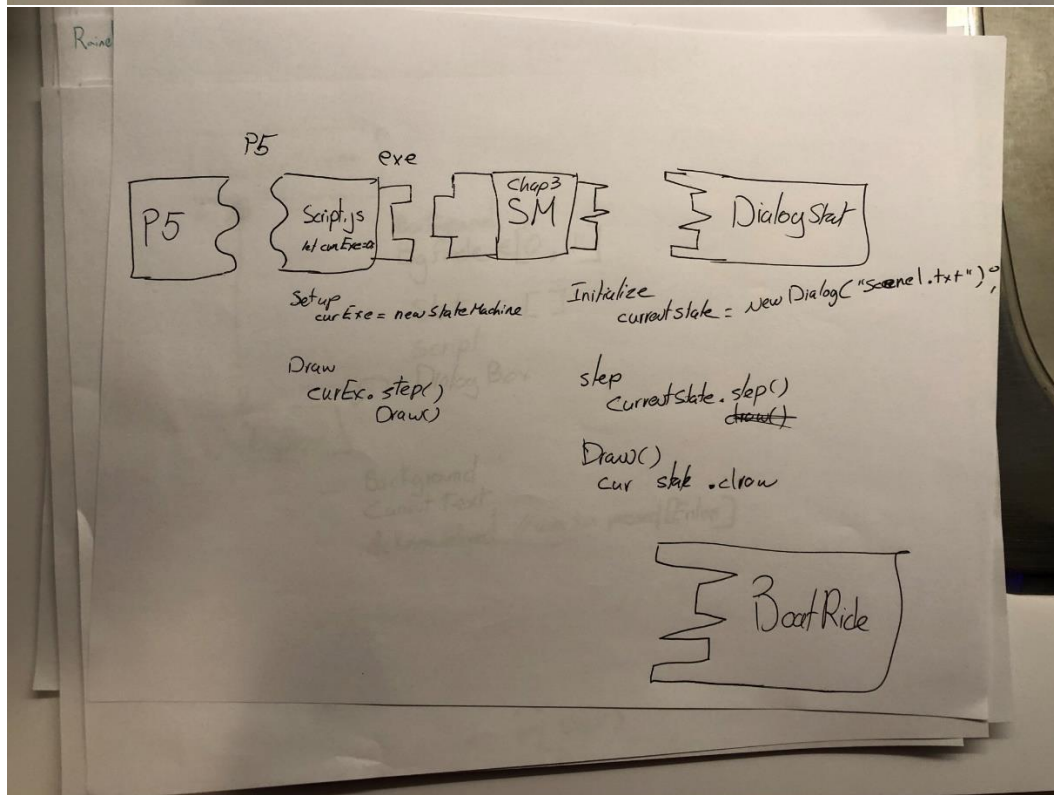 P5
exe
P5
Script.js
let curExe=
Chap3
SM
DialogStat
Setup
curExe = new StateMachine
Draw
curEx. step()
Draw()
Initialize
currentstate = New Dialog("Scene1.txt");
step
currentstate. step()
draw()
Draw()
cur state .draw
BoatRide
Background
Current Text